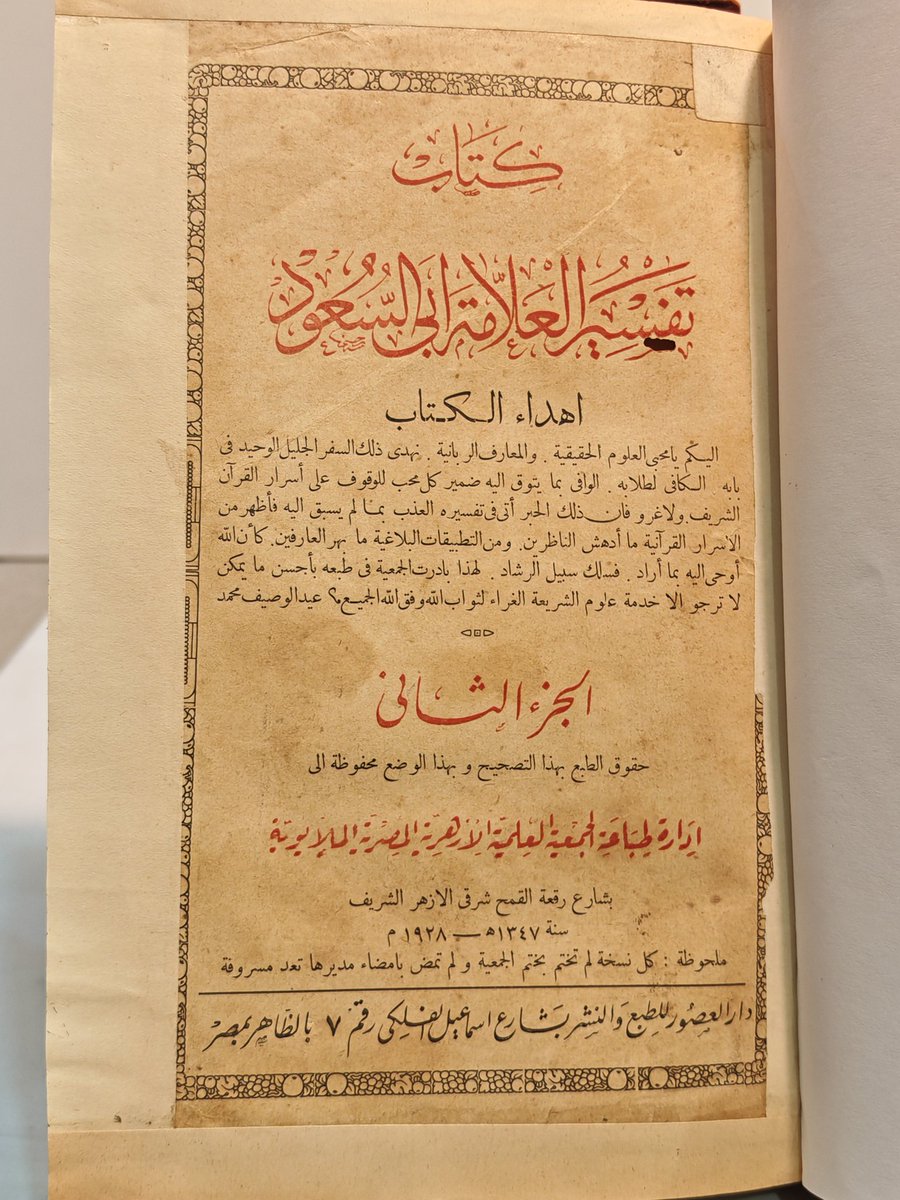 كتاب
تفسير العلامة ابى السعود
اهداء الكتاب
اليكم يا محبى العلوم الحقيقية . والمعارف الربانية . نهدى ذلك السفر الجليل الوحيد فى
بابه الكافى لطلابه . الوافى بما يتوق اليه ضمير كل محب للوقوف على أسرار القرآن
الشريف . ولا غرو فان ذلك الحبر أتى فى تفسيره العذب بما لم يسبق اليه فأظهر من
الاسرار القرآنية ما أدهش الناظرين . ومن التطبيقات البلاغية ما بهر العارفين . كأن الله
أوحى اليه بما أراد . فسلك سبيل الرشاد . لهذا بادرت الجمعية فى طبعه بأحسن ما يمكن
لا ترجو الا خدمة علوم الشريعة الغراء لثواب الله وفق الله الجميع؟ عبد الوصيف محمد
الجزء الثانى
حقوق الطبع بهذا التصحيح و بهذا الوضع محفوظة الى
إدارة طباعة الجمعية العلمية الأزهرية المصرية الملايوية
بشارع رقعة القمح شرقى الازهر الشريف
سنة ١٣٤٧ ه — ١٩٢٨ م
ملحوظة : كل نسخة لم تختم بختم الجمعية و لم تمض بامضاء مديرها تعد مسروقة
دار العصور للطبع والنشر بشارع اسماعيل الفلكى رقم ٧ بالظاهر بمصر